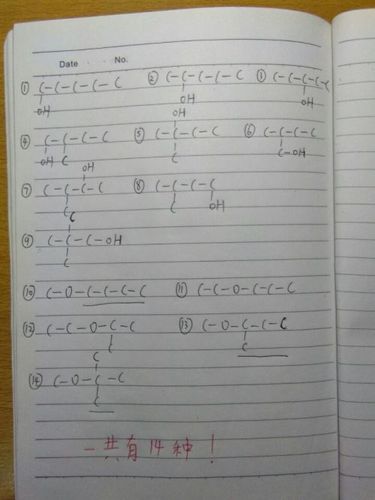 Date No.
① C-C-C-C-C ② C-C-C-C-C ③ C-C-C-C-C
OH OH OH
OH
④ C-C-C-C ⑤ C-C-C-C ⑥ C-C-C-C
OH C C C-OH
OH
⑦ C-C-C-C ⑧ C-C-C-C
C C OH
C
⑨ C-C-C-OH
C
⑩ C-O-C-C-C-C ⑪ C-C-O-C-C-C
⑫ C-C-O-C-C ⑬ C-O-C-C-C
C C
C
⑭ C-O-C-C
C
一共有14种!